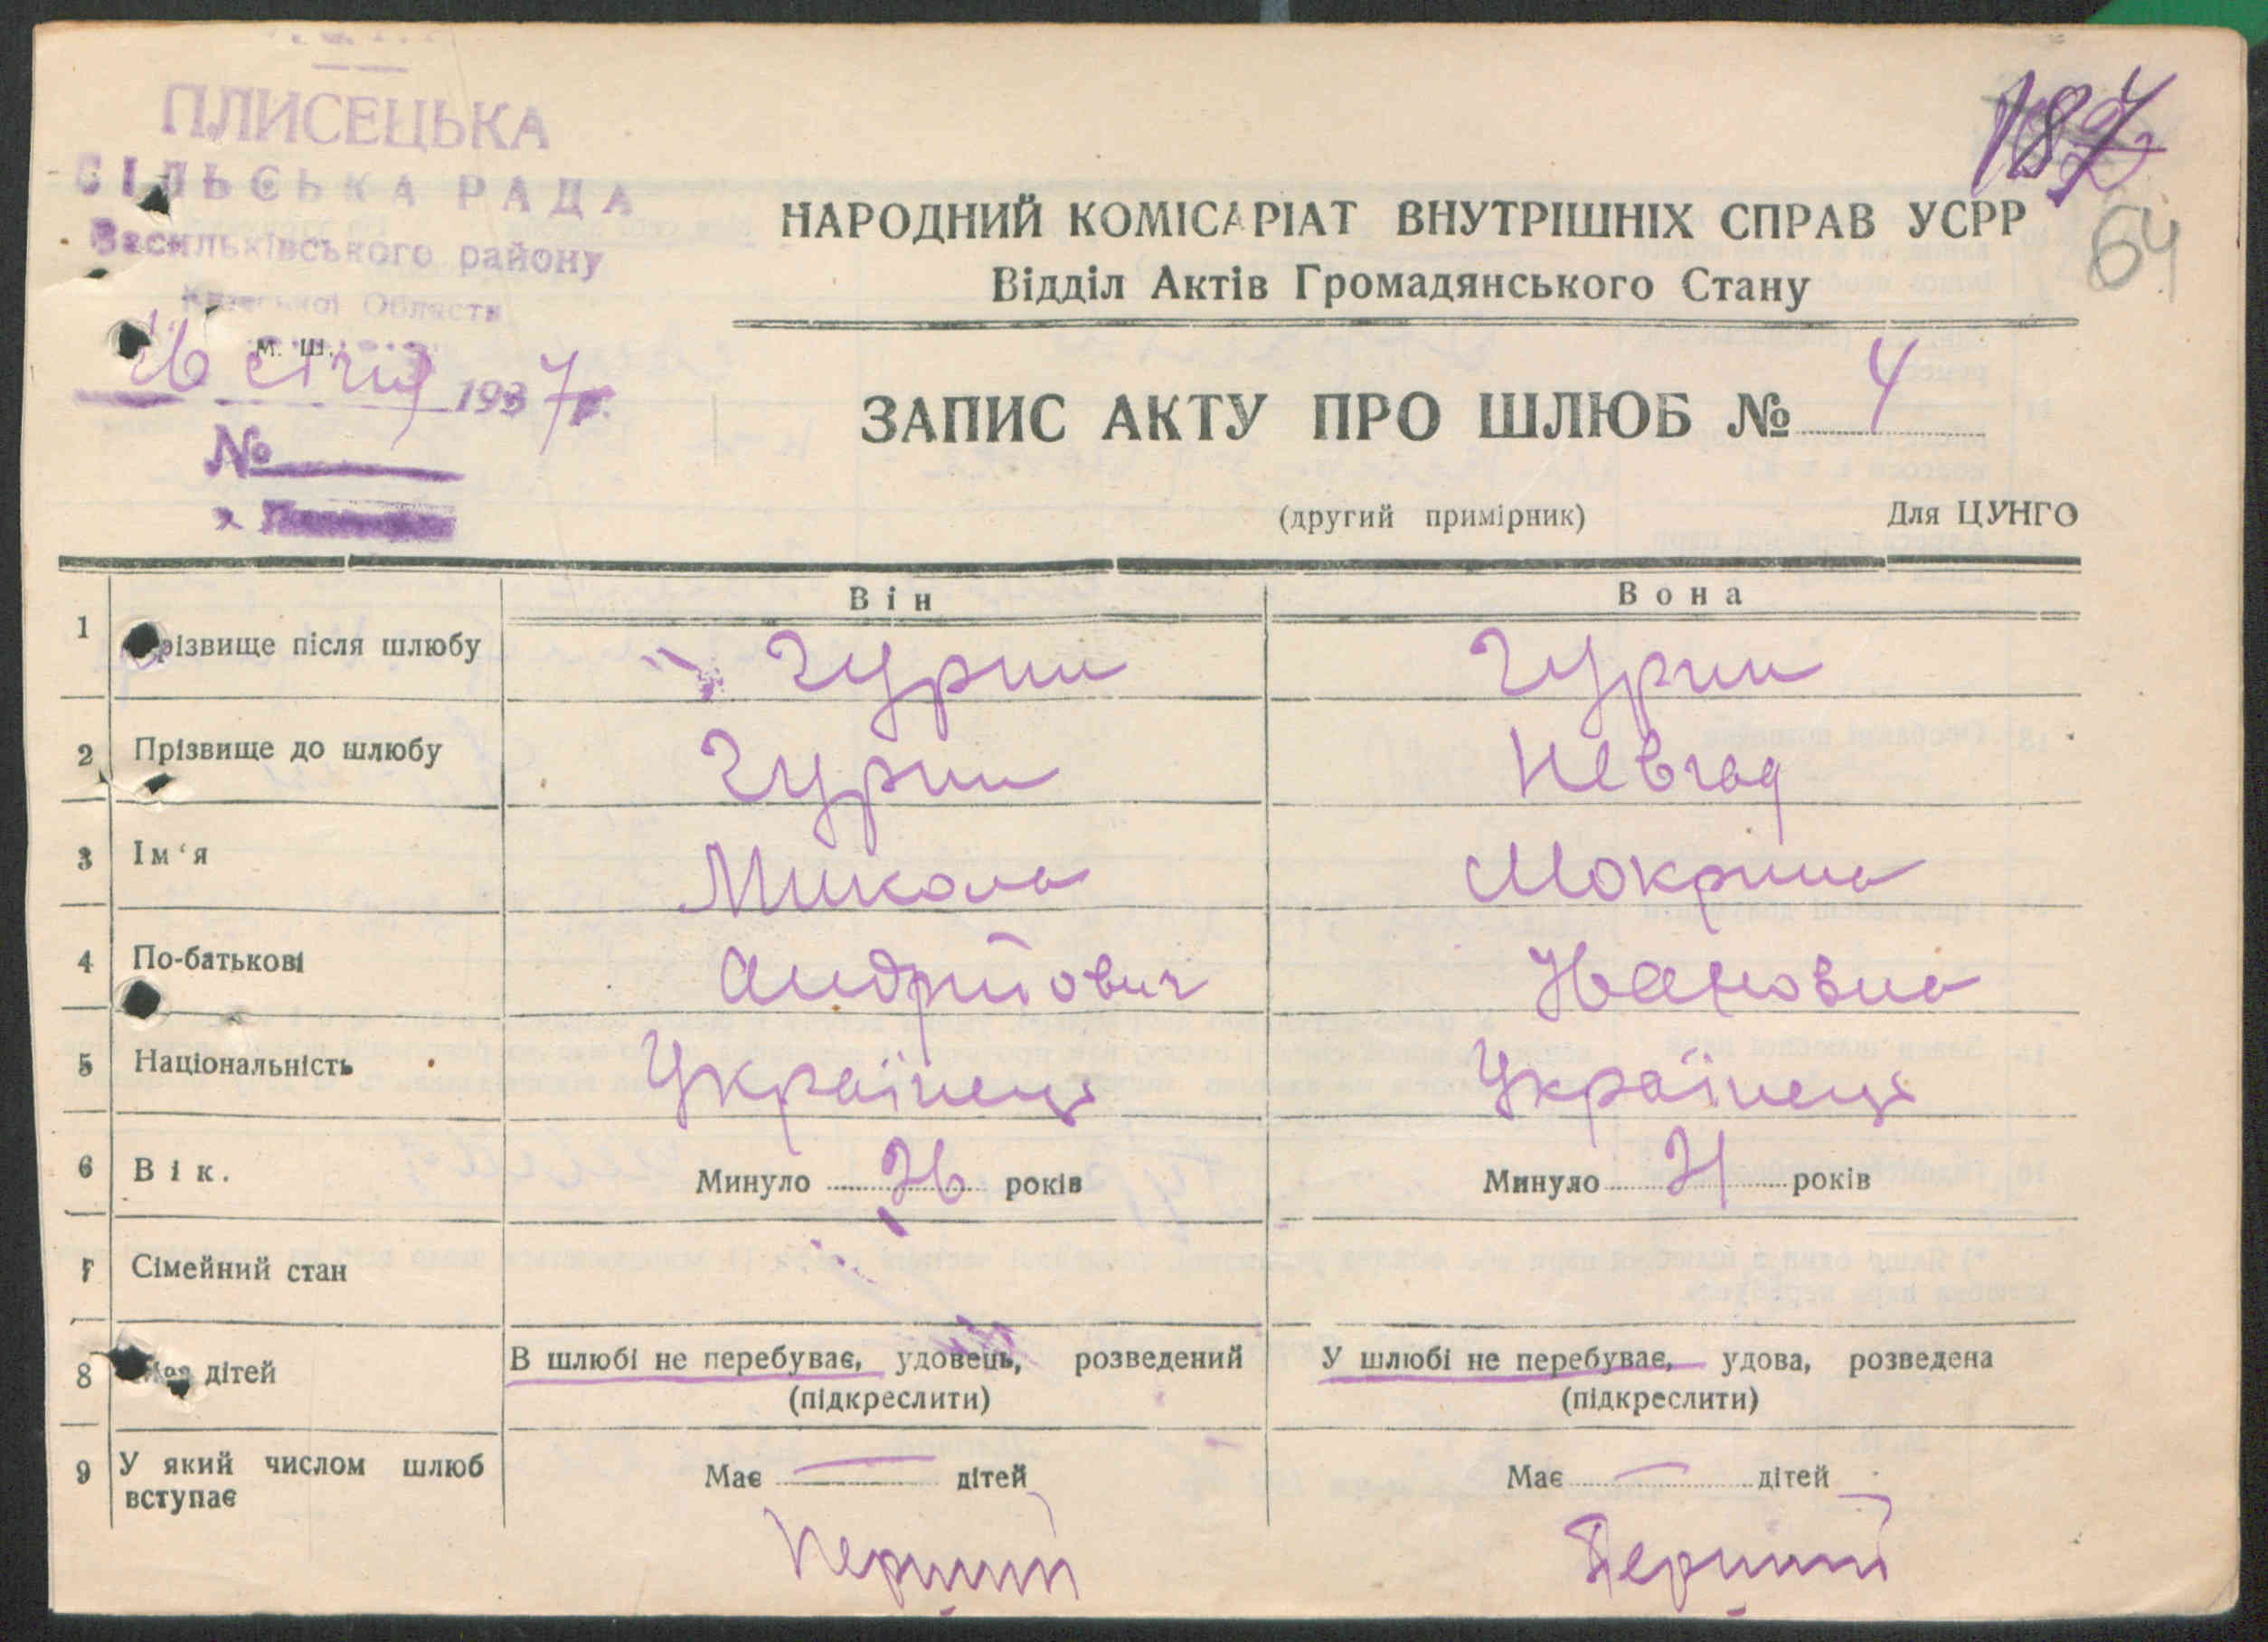 ПЛИСЕЦЬКА
СІЛЬСЬКА РАДА
Васильківського району
Київської Области
м. ш.
26 січня 1937 р.
№
187
64
НАРОДНИЙ КОМІСАРІАТ ВНУТРІШНІХ СПРАВ УСРР
Відділ Актів Громадянського Стану
ЗАПИС АКТУ ПРО ШЛЮБ № 4
(другий примірник) Для ЦУНГО
Він Вона
1 Прізвище після шлюбу Гурин Гурин
2 Прізвище до шлюбу Гурин Невгад
3 Ім‘я Микола Мокрина
4 По-батькові Андрійович Івановна
5 Національність Українець Українець
6 Вік. Минуло 26 років Минуло 21 років
7 Сімейний стан
8 Має дітей В шлюбі не перебуває, удовець, розведений У шлюбі не перебуває, удова, розведена
(підкреслити) (підкреслити)
9 У який числом шлюб вступає Має — дітей Має — дітей
Перший Перший